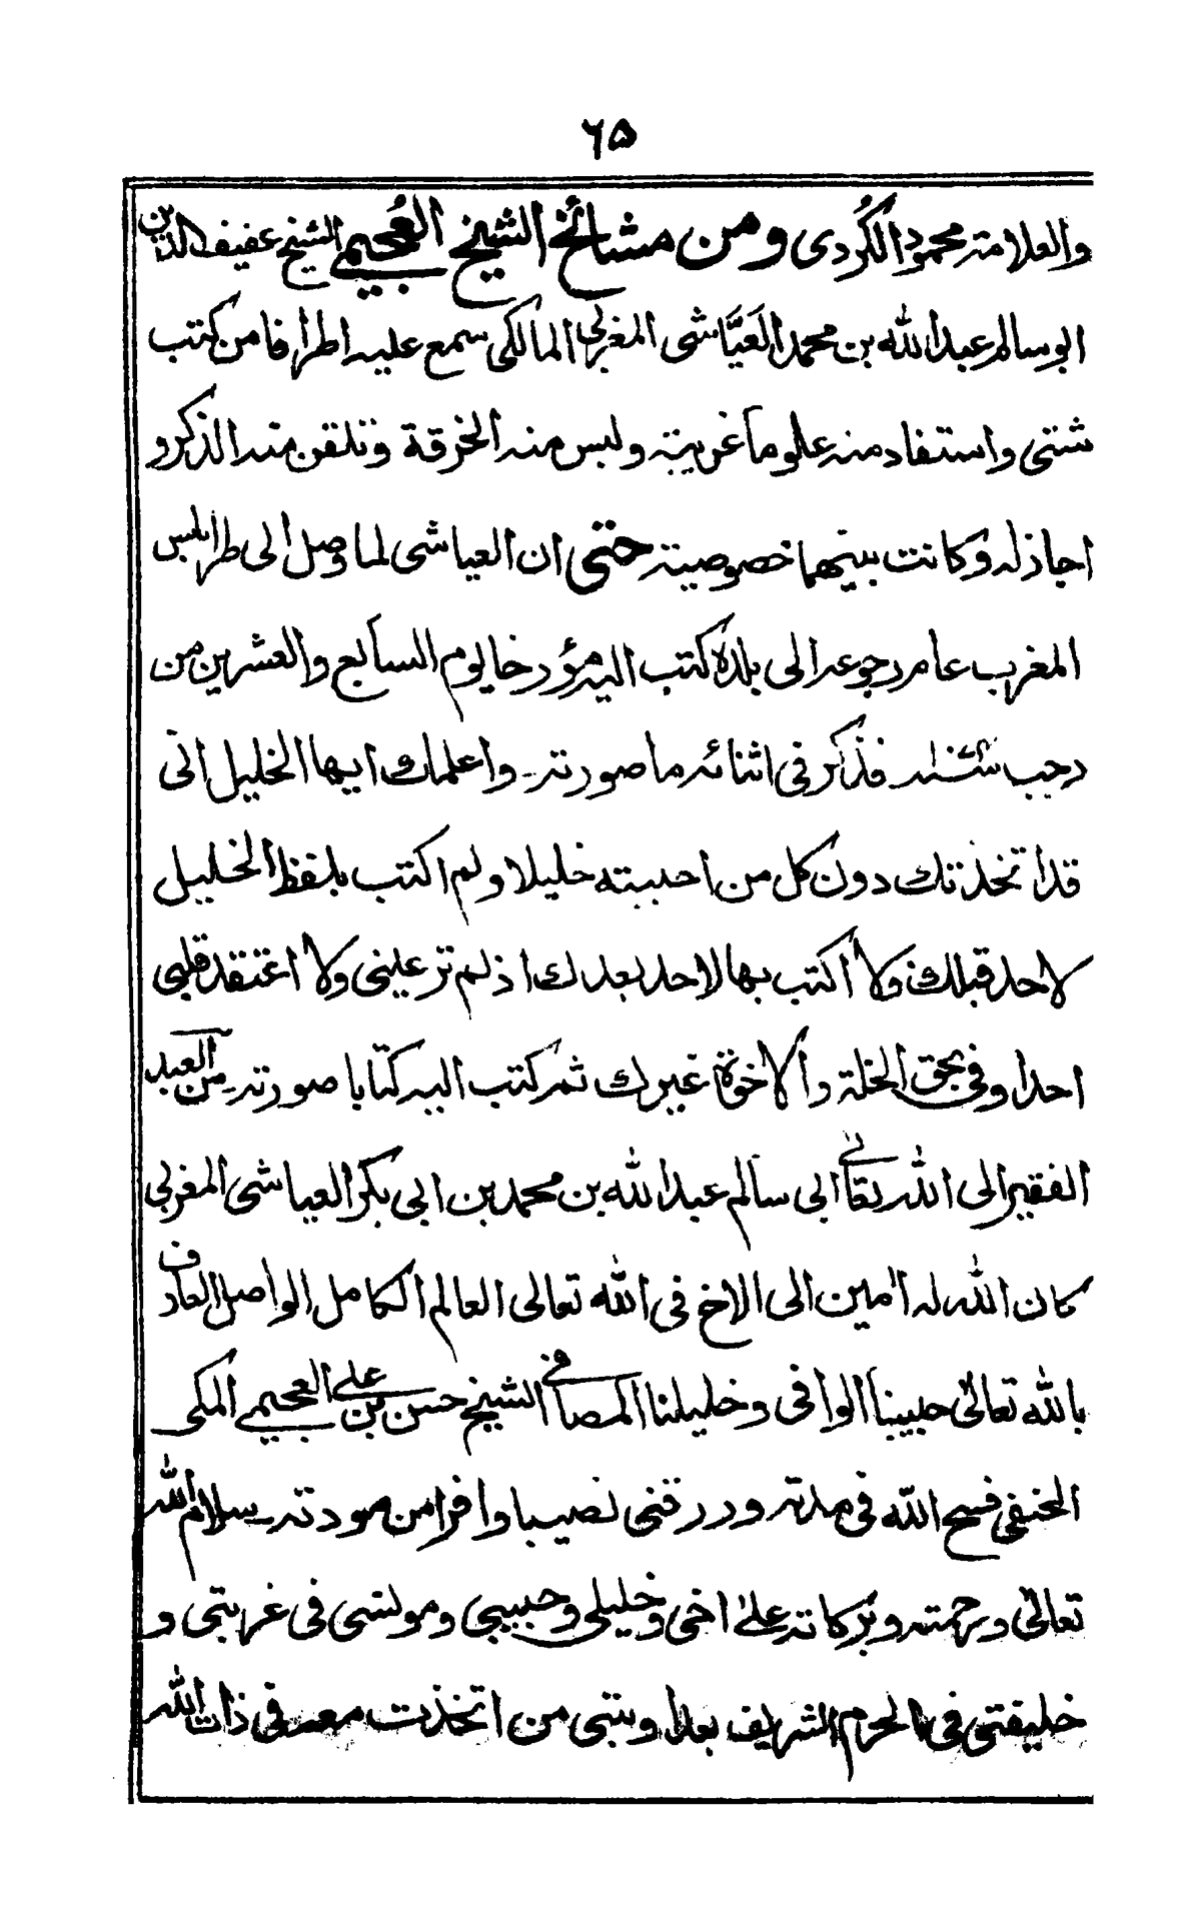 ٦٥
والعلامة محمود الكُردى ومن مشائخ الشيخ العُجيمي الشيخ عفيف الدين
ابو سالم عبد الله بن محمد العَيَّاشى المغربى المالكى سمع عليه اطرافا من كتب
شتى واستفاد منه علوما غريبة ولبس منه الخرقة وتلقن منه الذكر و
اجاز له وكانت بينهما خصوصية حتى ان العياشى لما وصل الى طرابلس
المغرب عام رجوعه الى بلده كتب اليه مؤرخا ليوم السابع والعشرين من
رجب فذكر فى اثنائه ما صورته واعلمك ايها الخليل انى
قد اتخذتك دون كل من احببته خليلا ولم اكتب بلفظ الخليل
لاحد قبلك ولا أكتب بها لاحد بعدك اذ لم تر عينى ولا اعتقد قلبى
احدا وفى بحق الخلة والاخوة غيرك ثم كتب اليه كتابا صورته من العبد
الفقير الى الله تعالى ابى سالم عبد الله بن محمد بن ابى بكر العياشى المغربى
كان الله له امين الى الاخ فى الله تعالى العالم الكامل الواصل العارف
بالله تعالى حبيبنا الوافى وخليلنا المصافى الشيخ حسن بن على العجيمي المكى
الحنفى فسح الله فى مدته ورزقنى نصيبا وافرا من مودته سلام الله
تعالى ورحمته وبركاته على اخى وخليلى وحبيبى ومونسى فى غربتى و
خليفتى فى الحرم الشريف بعد اوبتى من اتخذت معه فى ذات الله